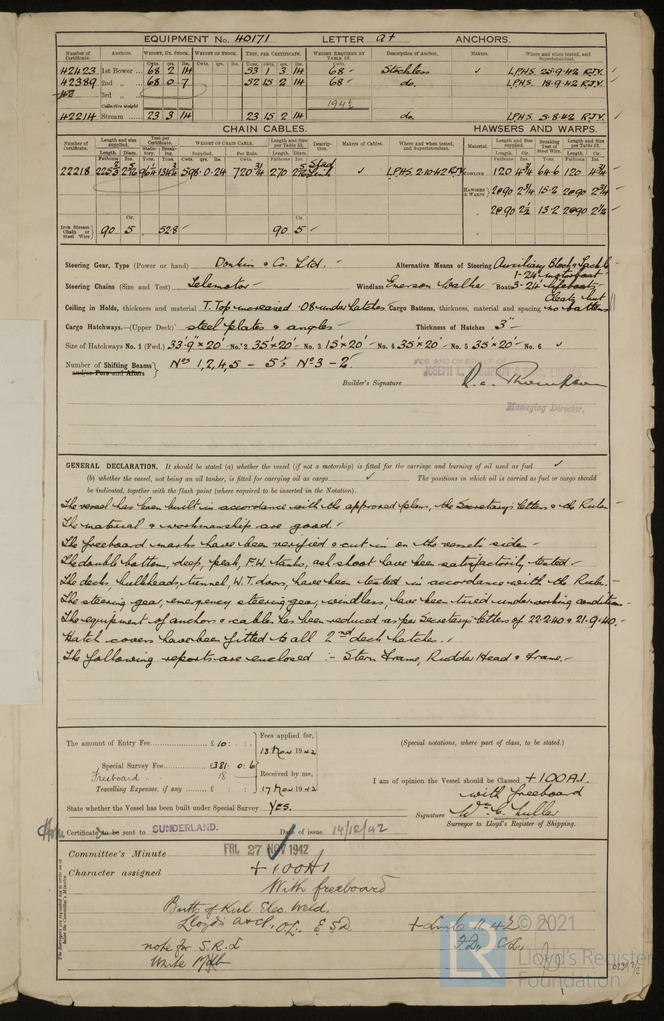 EQUIPMENT No. 40171 LETTER at ANCHORS.
Number of Certificate. Anchors. Weight, Ex. Stock. Weight of Stock. Test, per Certificate. Weight Required by Table 53. Description of Anchor. Makers. Where and when tested, and Superintendent.
Cwts. qrs. lbs. Cwts. qrs. lbs. Tons. cwts. qrs. lbs. Cwts.
42423 1st Bower 68 2 14 53 1 3 14 68 - Stockless ✓ L.P.H.S. 25-9-42 R.J.V.
42389 2nd „ 68 0 7 52 15 2 14 68 - do. L.P.H.S. 18-9-42 R.J.V.
3rd „
Collective weight 194½
42214 Stream 23 3 14 23 15 2 14 do. L.P.H.S. 5-8-42 R.J.V.
CHAIN CABLES. HAWSERS AND WARPS.
Number of Certificate. Length and size supplied. Test per Certificate. WEIGHT OF CHAIN CABLE. Length and size per Table 53. Description. Makers of Cables. Where and when tested, and Superintendent. Material. Length and size supplied. Breaking Test of Steel Wire. Length and size per Table 53.
22218 598-0-24 720¾ 270 ✓ L.P.H.S. 2.10.42 R.J.V. TOWLINE 120 4¾ 64.6 120 4¾
HAWSERS & WARPS 2@90 2¾ 15.2 2@90 2¾
2@90 2½ 13.2 2@90 2½
Iron Stream Chain or Steel Wire 90 5 52.8 90 5
Steering Gear, Type (Power or hand) Donkin & Co. Ltd. Alternative Means of Steering Auxiliary Block & Tackle
Steering Chains (Size and Test) Telemotor Windlass Emerson Walker Boats 1-24' motorboat 3-24' lifeboats
Ceiling in Holds, thickness and material T. Top increased .08 under hatches Cargo Battens, thickness, material and spacing Cleats but no battens
Cargo Hatchways.-(Upper Deck) steel plates & angles Thickness of Hatches 3"
Size of Hatchways No. 1 (Fwd.) 33'.9" x 20' No. 2 35' x 20' No. 3 15' x 20' No. 4 35' x 20' No. 5 35' x 20' No. 6 ✓
Number of Shifting Beams and/or Fore and Afters Nos 1, 2, 4, 5 - 5; No 3 - 2
FOR AND ON BEHALF OF
JOSEPH L. THOMPSON & SONS, LIMITED
Builder's Signature R.C. Thompson
Managing Director,
GENERAL DECLARATION. It should be stated (a) whether the vessel (if not a motorship) is fitted for the carriage and burning of oil used as fuel ✓
(b) whether the vessel, not being an oil tanker, is fitted for carrying oil as cargo ✓ The positions in which oil is carried as fuel or cargo should
be indicated, together with the flash point (where required to be inserted in the Notation).
The vessel has been built in accordance with the approved plans, the Secretary's letters & the Rules
The material & workmanship are good.
The freeboard marks have been verified & cut in on the vessel's side.
The double bottom, deep, peak, F.W. tanks, ash shoot have been satisfactorily tested.
The decks, bulkheads, tunnel, W.T. doors, have been tested in accordance with the Rules.
The steering gear, emergency steering gear, windlass, have been tried under working condition
The equipment of anchors & cables has been reduced as per Secretary's letters of 22.2.40 & 21.9.40.
Hatch covers have been fitted to all 2nd deck hatches.
The following reports are enclosed :- Stern Frame, Rudder Head & Frame.
The amount of Entry Fee £ 10 : : Fees applied for, 13 Nov 1942 (Special notations, where part of class, to be stated.)
Special Survey Fee 1381 : 0 : 6
Freeboard 18 Received by me,
Travelling Expenses, if any £ : : 17 Nov 1942 I am of opinion the Vessel should be Classed +100A1.
with freeboard
State whether the Vessel has been built under Special Survey Yes. Signature
Surveyor to Lloyd's Register of Shipping.
Certificate to be sent to SUNDERLAND. Date of issue 14/12/42
Committee's Minute FRI. 27 NOV 1942
Character assigned +100A1
With freeboard
Butts of Keel Elec. Weld.
Lloyd's A&CP.
note for S.R.L
© 2021
Lloyd's Register
Foundation